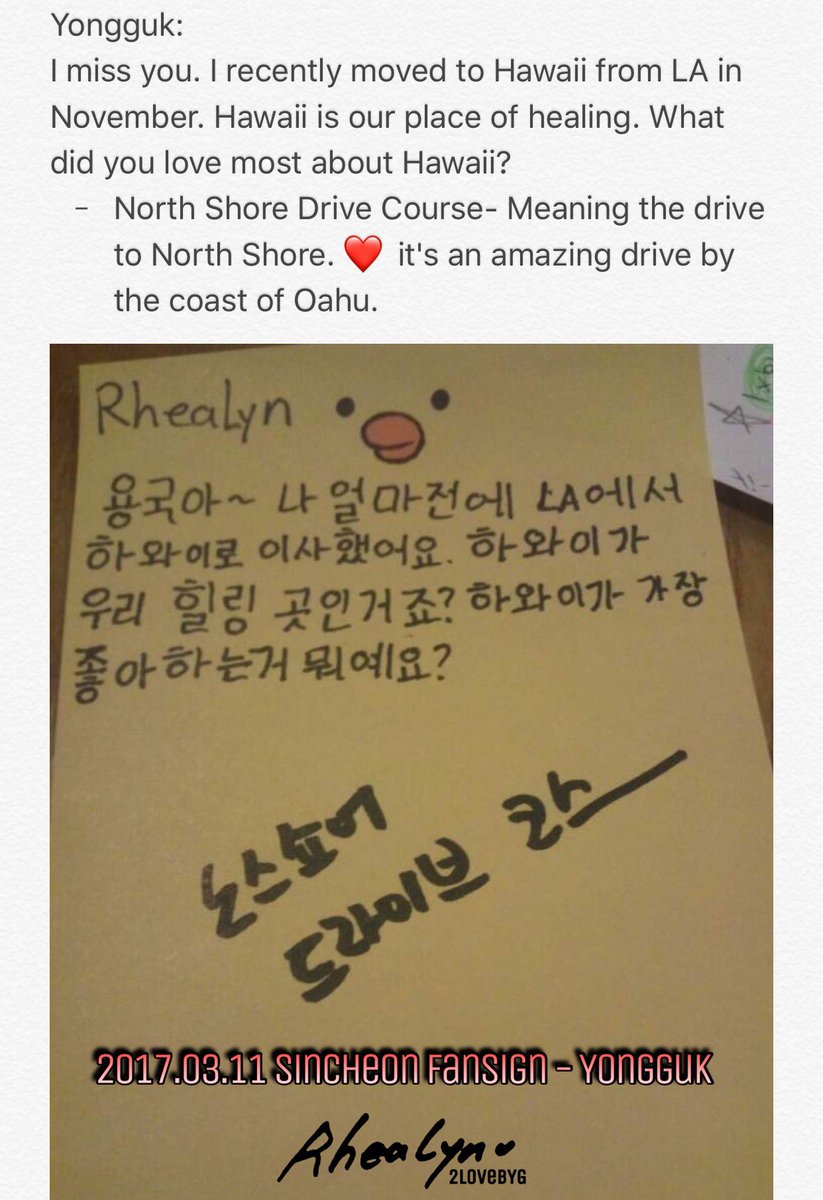 Yongguk:
I miss you. I recently moved to Hawaii from LA in
November. Hawaii is our place of healing. What
did you love most about Hawaii?
- North Shore Drive Course- Meaning the drive
to North Shore. ❤️ it's an amazing drive by
the coast of Oahu.
Rhealyn
용국아~ 나 얼마전에 LA에서
하와이로 이사했어요. 하와이가
우리 힐링 곳인거죠? 하와이가 가장
좋아하는거 뭐예요?
노스쇼어
드라이브 코스
2017.03.11 Sincheon Fansign - Yongguk
Rhealyn
2LOVEBYG